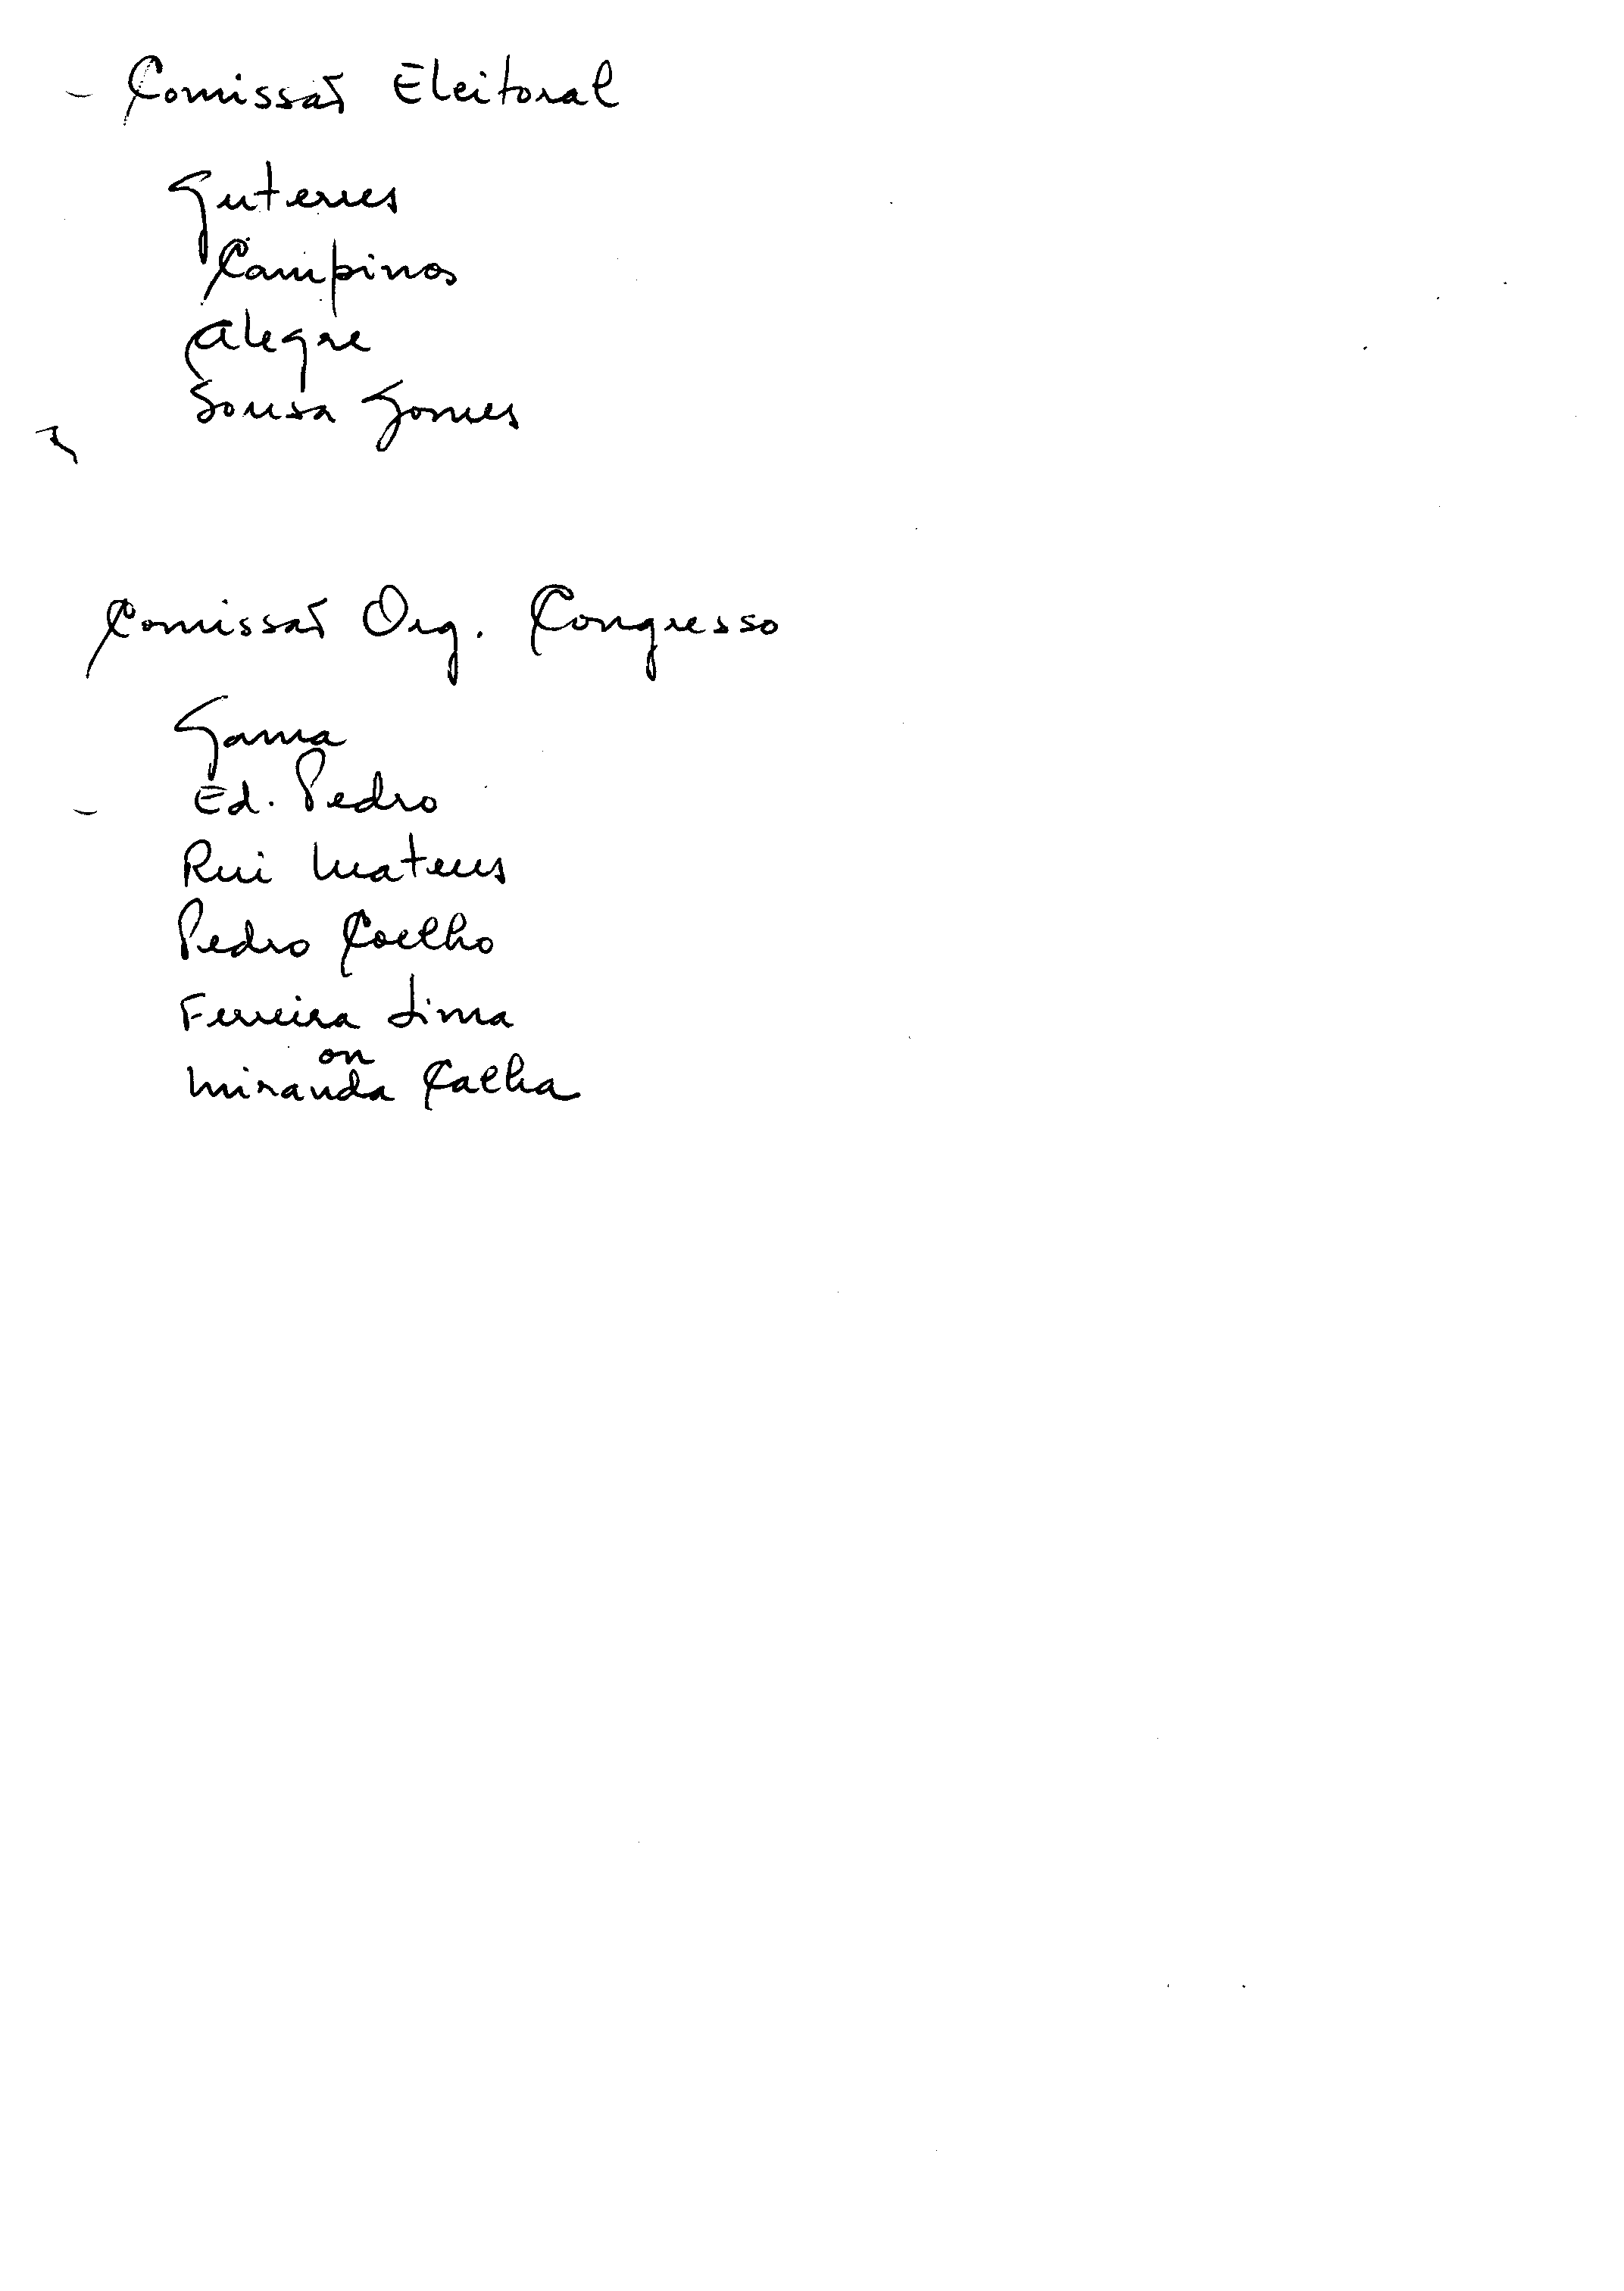 - Comissão Eleitoral
Guterres
Campinos
Alegre
Sousa Gomes
Comissão Org. Congresso
Gama
- Ed. Pedro
Rui Mateus
Pedro Coelho
Ferreira Lima
ou
Miranda Calha